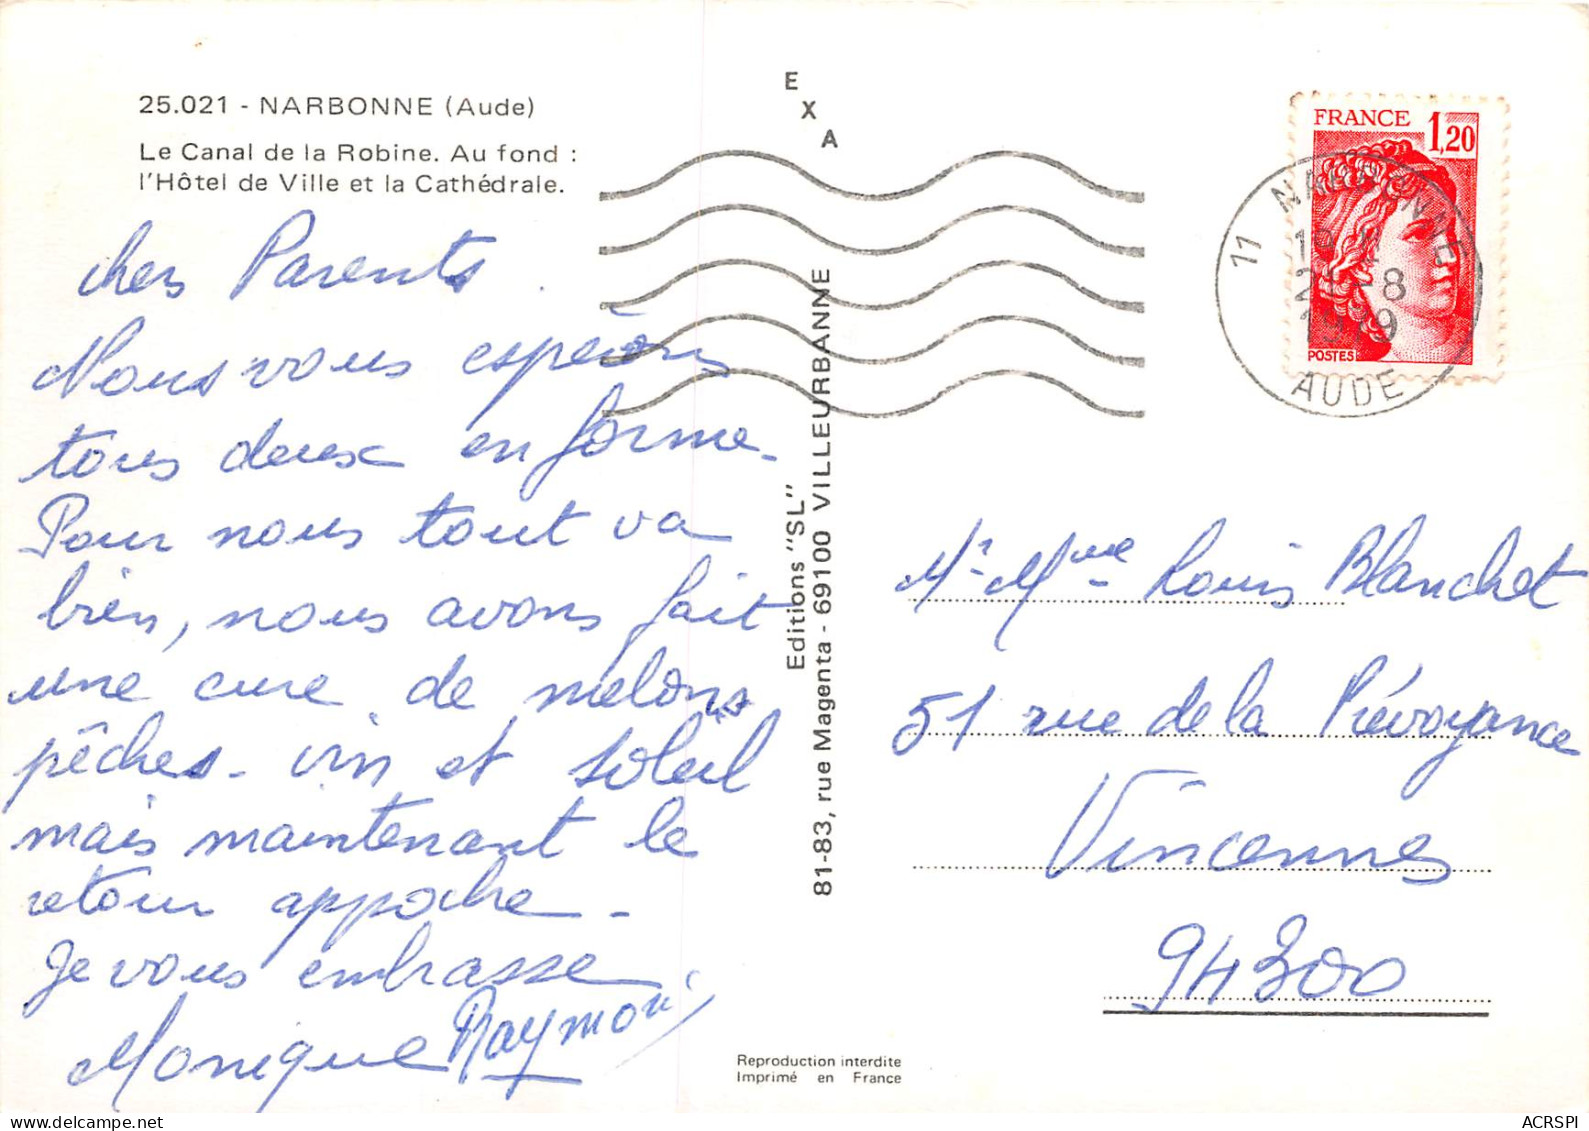 25.021 - NARBONNE (Aude)
Le Canal de la Robine. Au fond :
l'Hôtel de Ville et la Cathédrale.
chers Parents
Nous vous espérons
tous deux en forme.
Pour nous tout va
bien, nous avons fait
une cure de melons
pêches - vin et soleil
mais maintenant le
retour approche -
Je vous embrasse
Monique Raymond
E
X
A
Editions "SL"
81-83, rue Magenta - 69100 VILLEURBANNE
Reproduction interdite
Imprimé en France
FRANCE 1,20
POSTES
11 NARBONNE
-8
1979
AUDE
Mr Mme Louis Blanchet
51 rue de la Prévoyance
Vincennes
94300
delcampe.net
ACRSPI